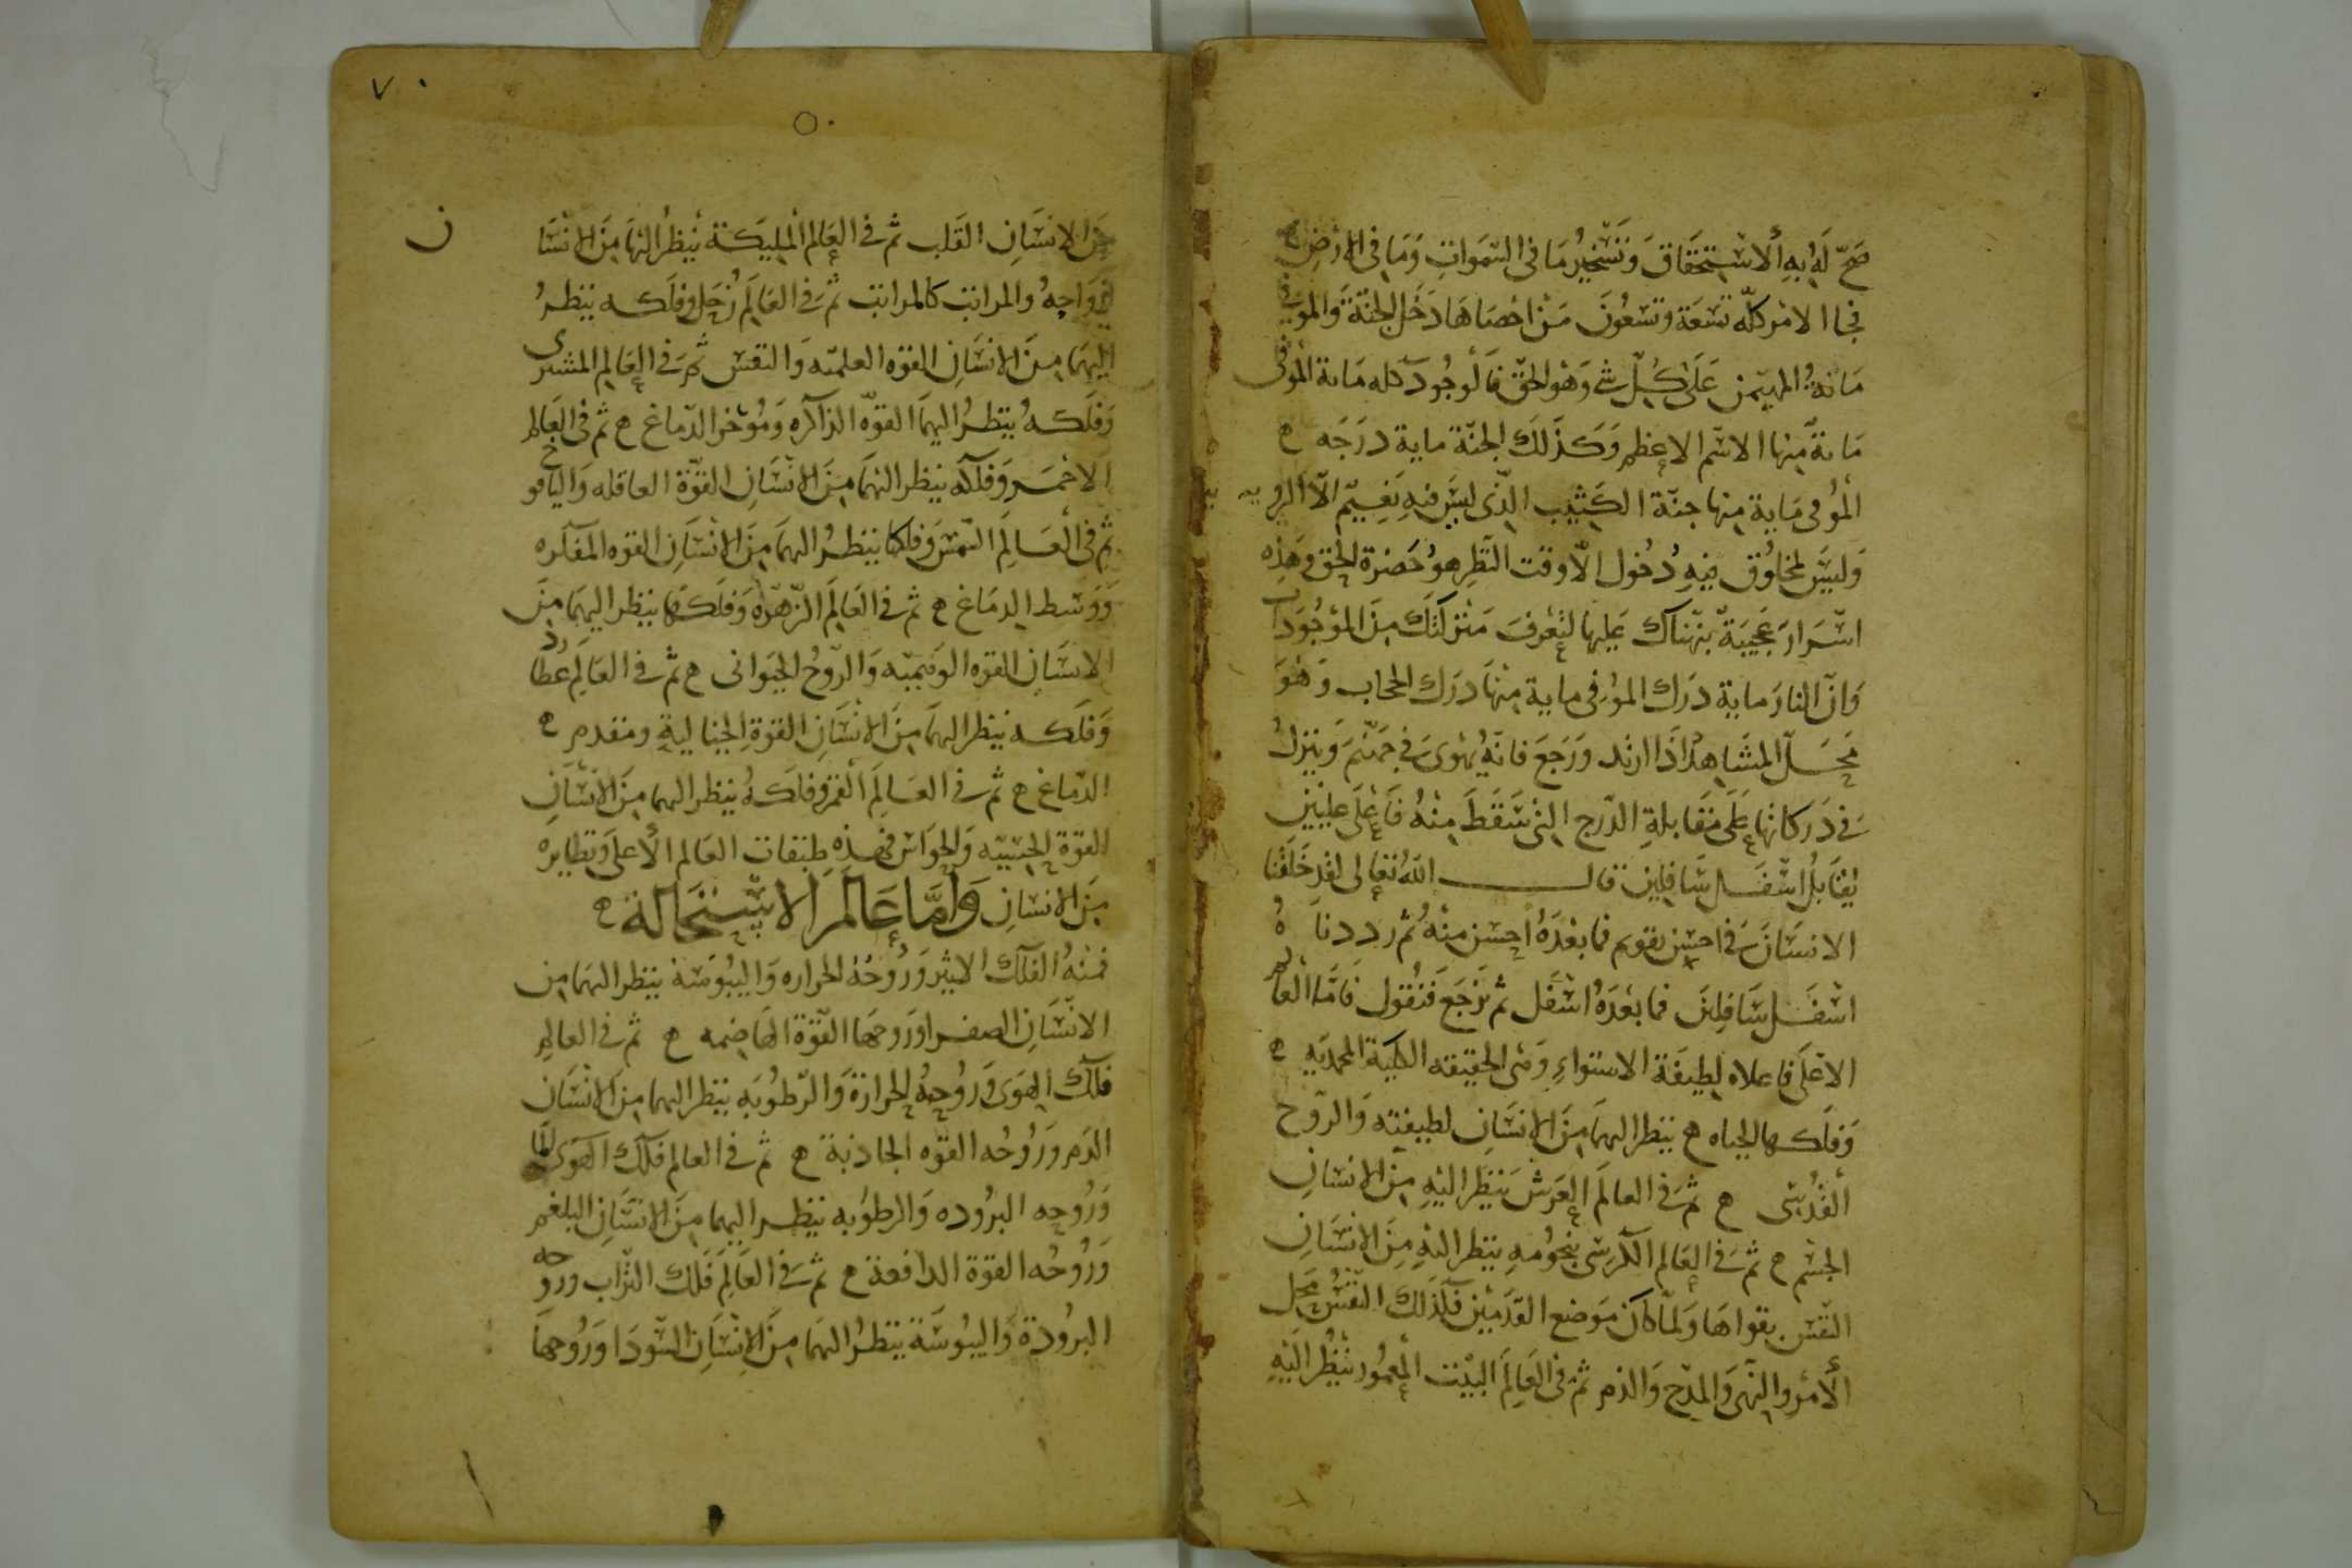 صَحّ لَه بِهِ الاسْتِحقَاق وَتَسْخِيرُ مَا في السّمَواتِ وَمَا فى الارْضِ
الامْر كلّه تسْعَة وتسْعُونَ مَنْ احْصَاهَا دَخَل الجنّةَ وَالموَفى
مَائة المهيمن عَلى كلّ شى وَهْو الحقّ فالوجُود كله مَاىة الموفى
مَاىةً مِنها الاسْم الاعظم وَكَذَلكَ الجنّة ماية درَجَه ۿ
المُوفى مَاية مِنها جنّة الكَثِيب الّذى ليسَ فيهِ نَعِيمٌ الّا الرويه
وَليسَ لمخلُوق فيهِ دُخُول الّا وقت النّظَر هوُ حَضرة الحق وهَذِه
اسْرَار عَجِيبَة نبّهناك عَليها لتعْرفَ مَنزلتكَ مِنَ الموْجُودات
وَانّ النارَ ماية دَرَك الموُفى ماية مِنهَا دَرَك الحجاب وَهْوَ
مَحَل المشَاهد اذَا ارتد وَرَجَعَ فانّهُ يَهْوىَ فى جَهنّمَ وَينزِلُ
فى دَركاتهَا عَلى مقَابلةِ الدّرج التى سَقَطَ مِنْهُ فَاعْلى عِليّين
يُقَابلُ اسْفَل سَافِلين قال اللهُ تعَالى لقد خَلَقْنا
الانسَانَ فى احسَن تقويم فما بعْدَهُ احسَن مِنْهُ ثم رددناهُ
اسْفَل سَافِلينَ فما بعْدَهُ اسْفَل ثم نَرجَعَ فنَقُول فَامّا العالم
الاعْلَى فاعلاه لطِيفَة الاستواءِ وَهْى الحقيقه الكليّة المحمديّه ۿ
وَفلَكها الحياه ۿ ينظر اليهمَا مِنَ الانسَانِ لطيفته وَالرّوح
القدُسِى ۿ ثمّ فى العالَم العَرش يَنظر اليْهِ مِنَ الانسَانِ
الجسْم ۿ ثمّ فى العَالم الكرْسى بنجُومهِ ينظر اليهِ مِنَ الانْسَانِ
النّفس بقواهَا وَلمّا كانَ مَوضع القدَمَيْن فكذَلكَ النّفسُ محل
الأمْر والنّهى وَالمدْح وَالذم ثمّ فى العَالم البيْت المعمُور ينظُر اليْهِ
٧٠
٥٠
ن
مِنَ الانسَانِ القَلب ثم فى العَالم المليَكة ينظرُ اليهَا مِنَ الانسَا
ارْوَاحِهُ والمراتب كالمراتب ثمّ فى العَالَم زُحَل وفلَكه ينظرُ
اليهمَا مِنَ الانسَانِ القوّه العلميّه وَالنفس ثمّ فى العَالِم المشترى
وَفلَكه يُنظرُ اليهمَا القوّه الذاكره وَمُؤخر الدّماغ ۿ ثم فى العَالم
الاحْمَر وَفلَكه ينظر اليهمَا مِنَ الانْسَانِ القوّة العاقله وَاليَافوخ
ثم فى العَالَم الشمسَ وفلكها ينظرُ اليهمَا مِنَ الانْسَانِ القوه المفكره
وَوَسَط الدِمَاغ ۿ ثم فى العَالَم الزّهرَه وَفلَكهَا ينظر اليهمَا مِنَ
الانسَانِ القوّه الوَهميّه وَالرّوحُ الحيَوانى ۿ ثم فى العَالَم عُطارد
وَفلَكه ينظر اليهمَا مِنَ الانْسَانِ القوة الخيَاليةِ ومقدم ۿ
الدّماغ ۿ ثم فى العَالم القمَر وفلَكهُ ينظر اليهما مِنَ الانسَانِ
القوّة الحِسّيّه وَالحوَاس فهذِه طبَقات العَالم الأعلى وَنظايره
مِنَ الانسانِ وَامَّا عَالَم الاسْتِحَالة ۿ
فمنهُ الفلَك الاثير وَرُوحُهُ الحراره وَاليبُوسَة ينظر اليهمَا مِن
الانْسَانِ الصفرا وَرُوحهَا القوّة الهاضِمه ۿ ثم فى العَالم
فلَك الهوَى وَرُوحهُ الحرارة وَالرّطُوبَه ينظر اليهما مِنَ الانْسَان
الدَم وَرُوحُه القوّه الجاذبة ۿ ثم فى العالم فلَك المَا
وَرُوحِه البرُوده وَالرطوبه ينظر اليهما مِنَ الانْسَانِ البلغم
وَرُوحُه القوّة الدافعة ۿ ثمّ فى العَالَم فَلك التراب وروحه
البرُودة وَاليبُوسَة ينظرُ اليهمَا مِنَ الانْسَانِ السّودَا وَرُوحهَا